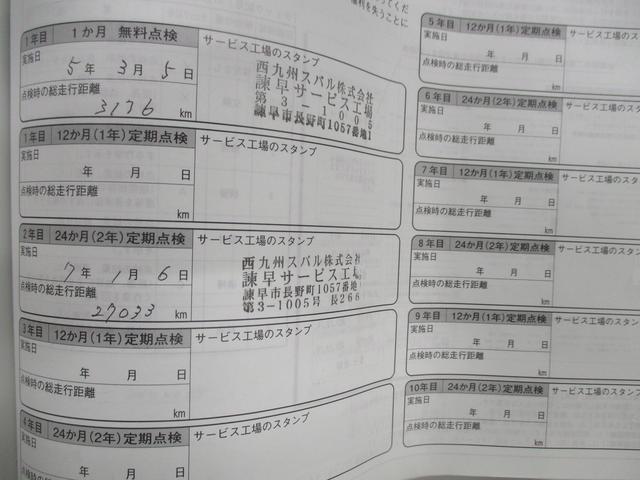 ってくだ
権利を失うことに
1年目 1か月 無料点検
サービス工場のスタンプ
実施日
5年 3月 5日
点検時の総走行距離
3176 km
西九州スバル株式会社
諫早サービス工場
第3-1005
諫早市長野町1057番地1
1年目 12か月(1年)定期点検
サービス工場のスタンプ
実施日
年 月 日
点検時の総走行距離
km
2年目 24か月(2年)定期点検
サービス工場のスタンプ
実施日
7年 1月 6日
点検時の総走行距離
27033 km
西九州スバル株式会社
諫早サービス工場
諫早市長野町1057番地1
第3-1005号 長266
3年目 12か月(1年)定期点検
サービス工場のスタンプ
実施日
年 月 日
点検時の総走行距離
km
4年目 24か月(2年)定期点検
サービス工場のスタンプ
実施日
年 月 日
点検時の総走行距離
5年目 12か月(1年)定期点検
サービス工場
実施日
年 月 日
点検時の総走行距離
km
6年目 24か月(2年)定期点検
サービス工場のス
実施日
年 月 日
点検時の総走行距離
km
7年目 12か月(1年)定期点検
サービス工場のスタ
実施日
年 月 日
点検時の総走行距離
km
8年目 24か月(2年)定期点検
サービス工場のスタン
実施日
年 月 日
点検時の総走行距離
km
9年目 12か月(1年)定期点検
サービス工場のスタンプ
実施日
年 月 日
点検時の総走行距離
km
10年目 24か月(2年)定期点検
サービス工場のスタンプ
実施日
年 月 日
点検時の総走行距離
km